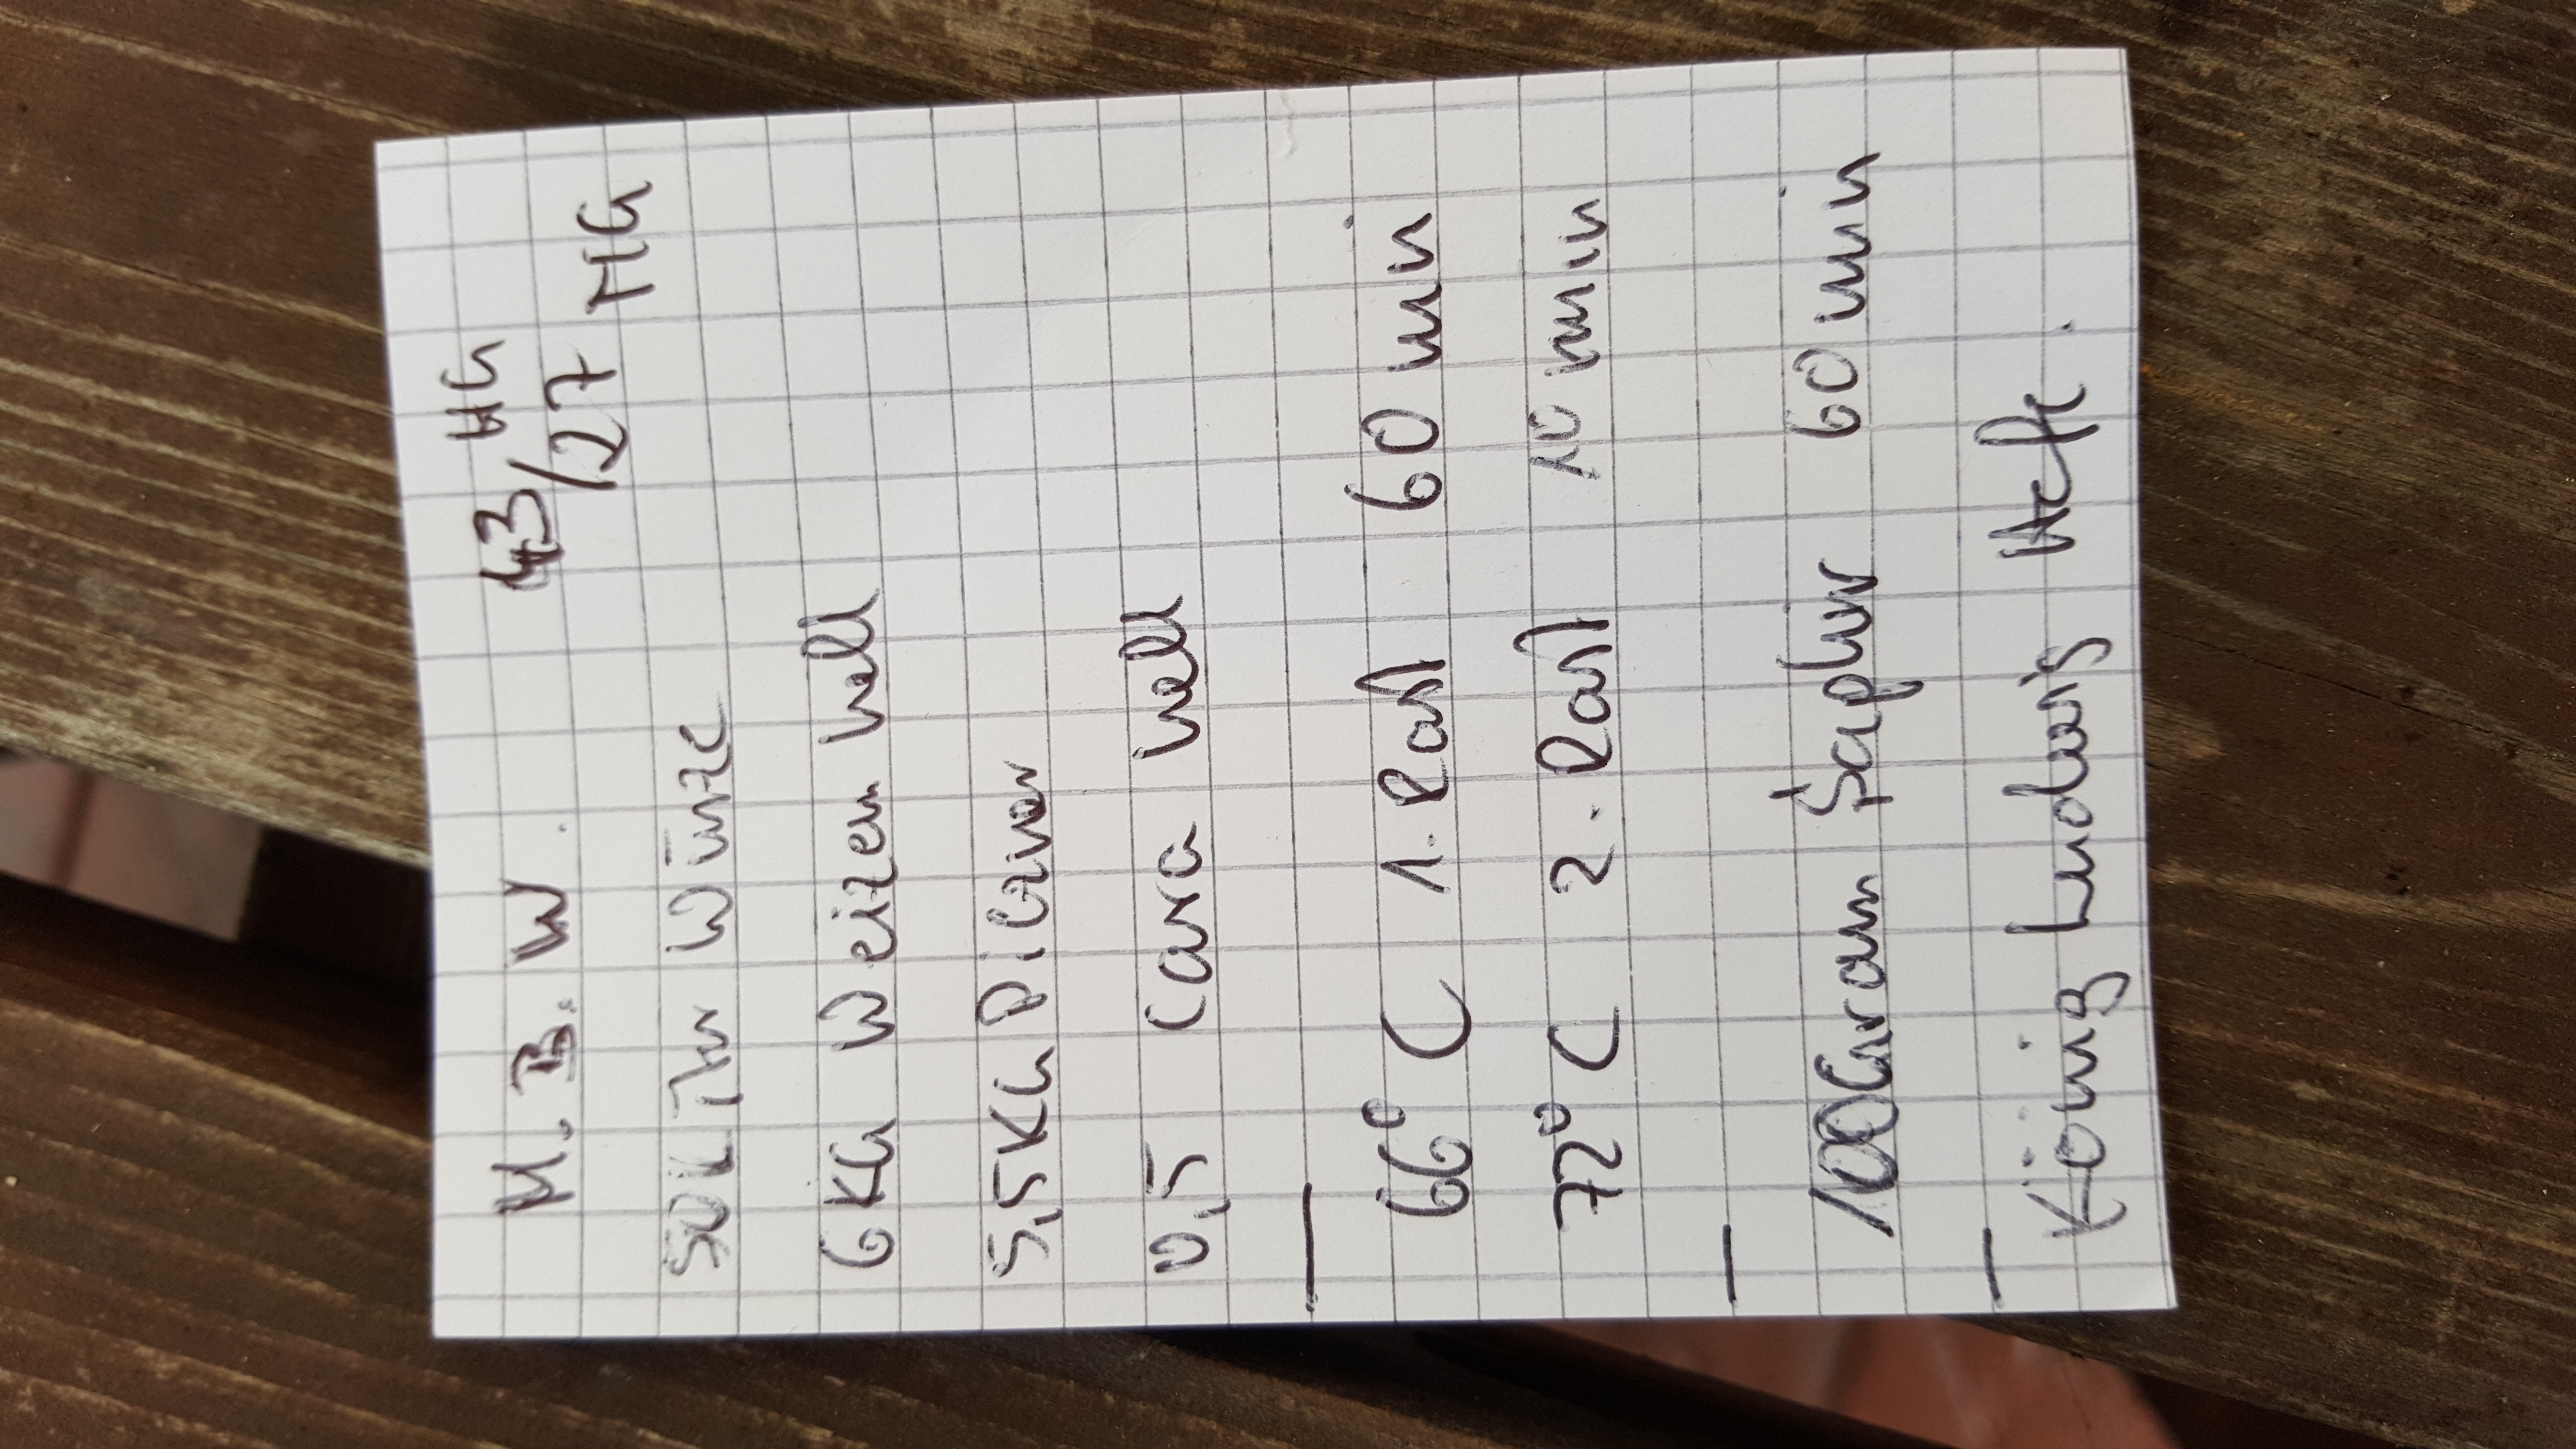 H. B. W. 43/27 HG NG
50 LTR Würze
6 KG Weizen hell
5,5 KG Pilsner
0,5 Cara hell
66° C 1. Rast 60 min
72° C 2. Rast 10 min
100 Gram Saphir 60 min
König Ludwig Hefe.